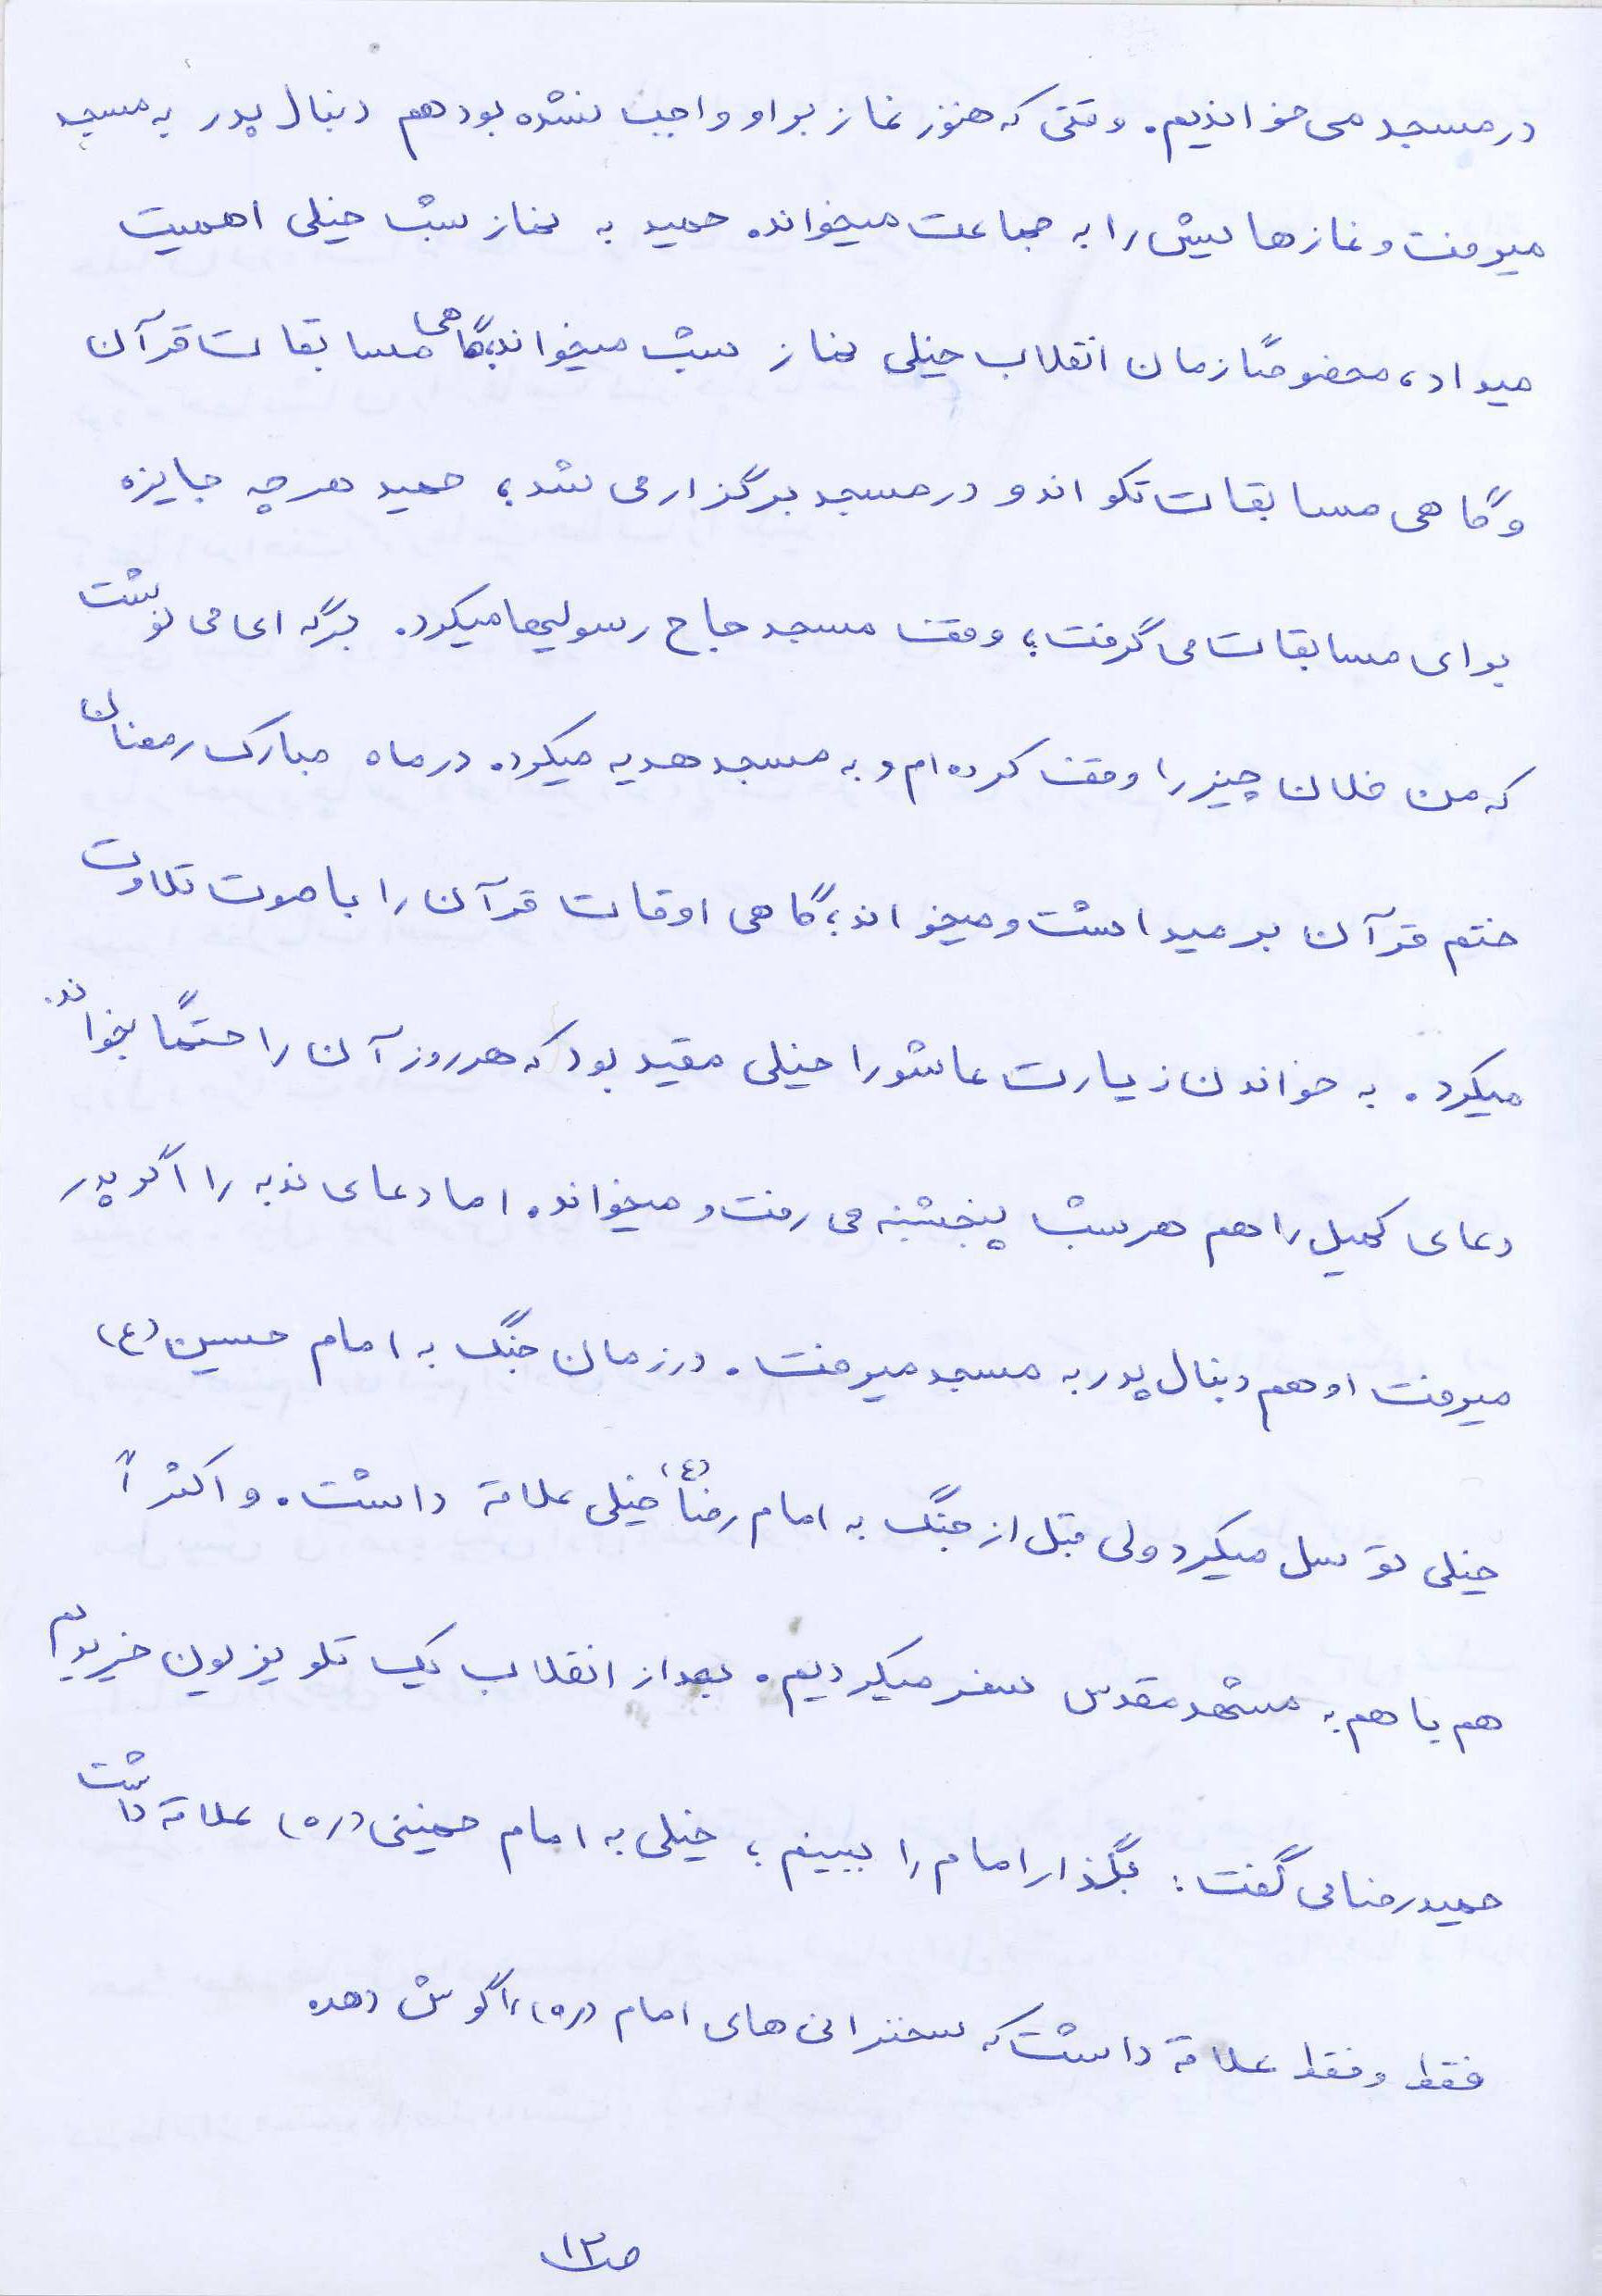 در مسجد می خواندیم. وقتی که هنوز نماز بر او واجب نشده بود هم دنبال پدر به مسجد
میرفت و نمازهایش را به جماعت میخواند. حمید به نماز شب خیلی اهمیت
میداد، مخصوصاً زمان انقلاب خیلی نماز شب میخواند؛ گاهی مسابقات قرآن
و گاهی مسابقات تکواندو در مسجد برگزار می شد؛ حمید هر چه جایزه
برای مسابقات می گرفت؛ وقف مسجد حاج رسولیها میکرد. برگه ای می نوشت
که من فلان چیز را وقف کرده ام و به مسجد هدیه میکرد. در ماه مبارک رمضان
ختم قرآن بر میداشت و میخواند؛ گاهی اوقات قرآن را با صوت تلاوت
میکرد. به خواندن زیارت عاشورا خیلی مقید بود که هر روز آن را حتماً بخواند.
دعای کمیل را هم هر شب پنجشنبه می رفت و میخواند. اما دعای ندبه را اگر پدر
میرفت او هم دنبال پدر به مسجد میرفت. در زمان جنگ به امام حسین (ع)
خیلی توسل میکرد ولی قبل از جنگ به امام رضا (ع) خیلی علاقه داشت. و اکثراً
هم با هم به مشهد مقدس سفر میکردیم. بعد از انقلاب یک تلویزیون خریدیم
حمیدرضا می گفت: بگذار امام را ببینم؛ خیلی به امام خمینی (ره) علاقه داشت
فقط و فقط علاقه داشت که سخنرانی های امام (ره) را گوش دهد.
ص ۱۳